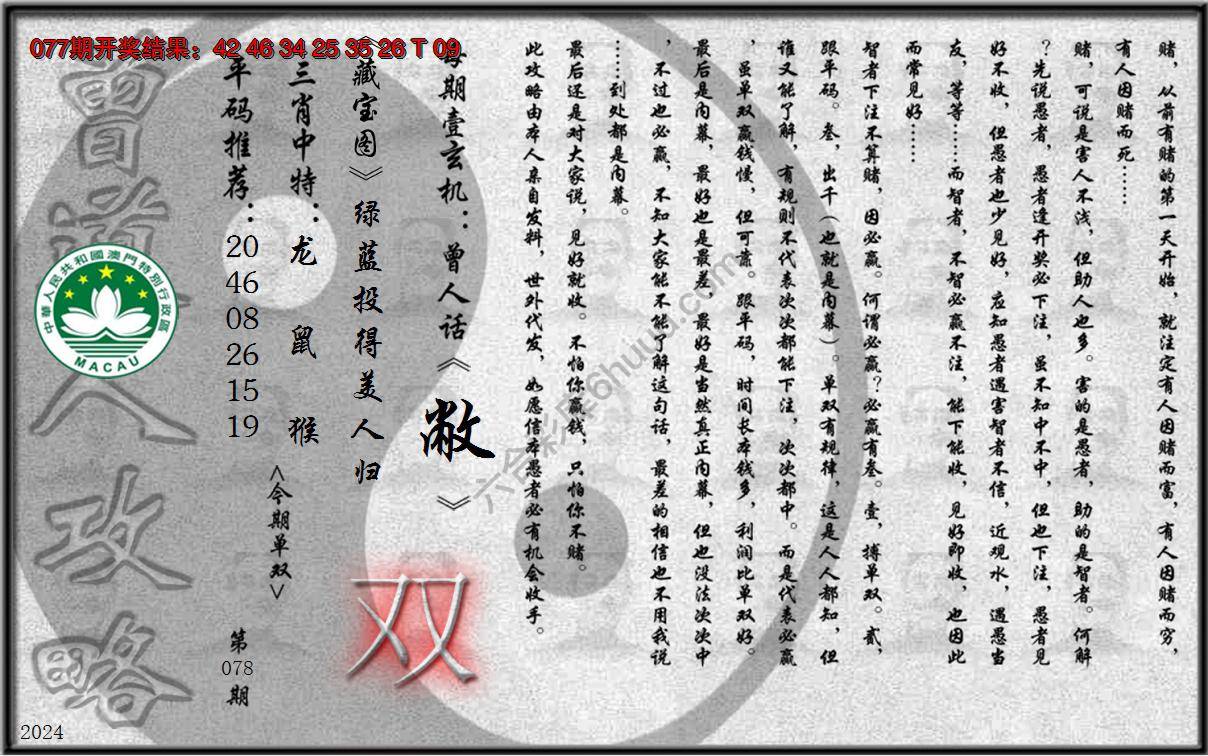 077期开奖结果：42 46 34 25 35 26 T 09
赌，从前有赌的第一天开始，就注定有人因赌而富，有人因赌而穷，
有人因赌而死……
赌，可说是害人不浅，但助人也多。害的是愚者，助的是智者。何解
？先说愚者，愚者逢开奖必下注，虽不知中不中，但也下注，愚者见
好不收，但愚者也少见好，应知愚者遇害智者不信，近观水，遇愚当
友，等等……而智者，不智必赢不注，能下能收，见好即收，也因此
而常见好……
智者下注不算赌，因必赢。何谓必赢？必赢有叁。壹，搏单双。贰，
跟平码。叁，出千（也就是内幕）。单双有规律，这是人人都知，但
谁又能了解，有规则不代表次次都能下注，次次都中。而是代表必赢
，虽单双赢钱慢，但可靠。跟平码，时间长本钱多，利润比单双好。
最后是内幕，最好也是最差，最好是当然真正内幕，但也没法次次中
，不过也必赢，不知大家能不能了解这句话，最差的相信也不用我说
……到处都是内幕。
最后还是对大家说，见好就收。不怕你赢钱，只怕你不赌。
此攻略由本人亲自发料，世外代发，如愿信本愚者必有机会收手。
每期壹玄机：曾人话《敝》
《藏宝图》绿蓝投得美人归
双
三肖中特：龙 鼠 猴
<今期单双>
平码推荐：20 46 08 26 15 19
第078期
曾道人攻略
中華人民共和國澳門特別行政區
MACAU
2024